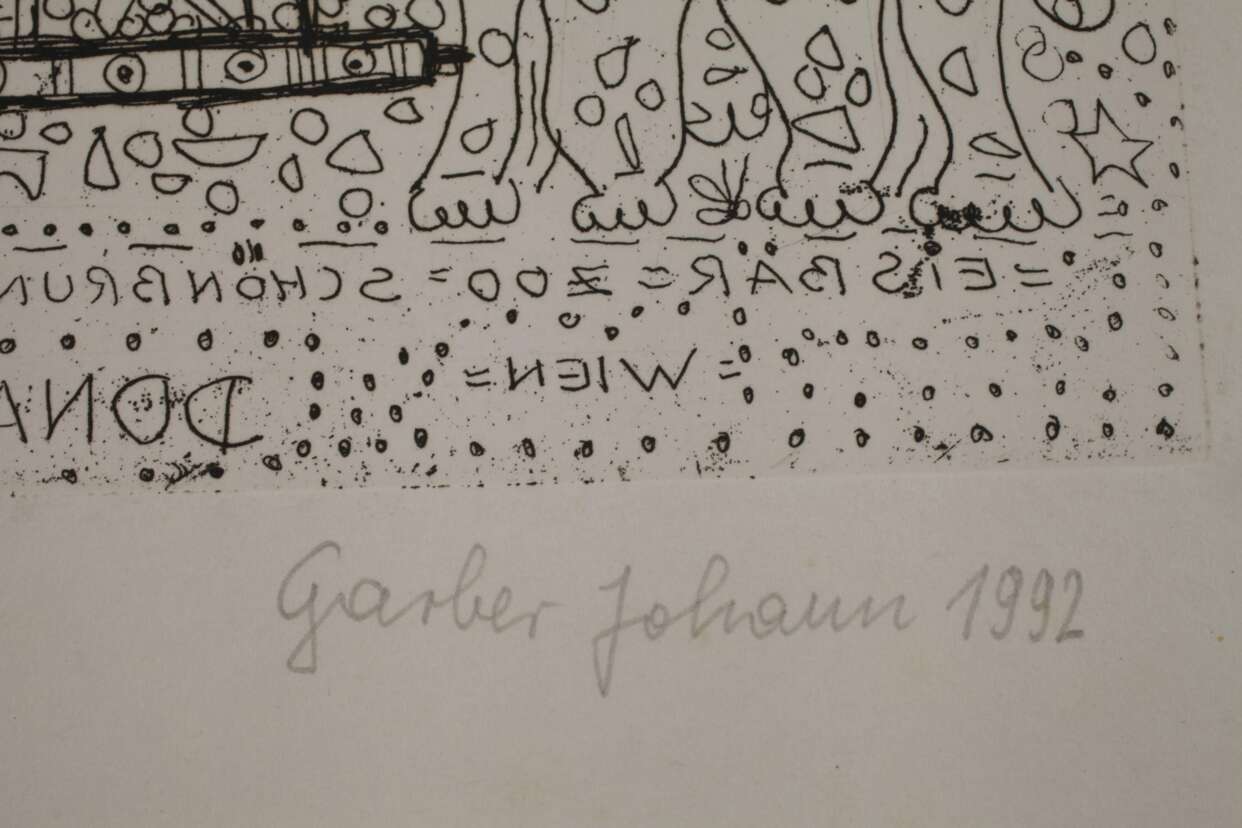 =EISBÄR=ZOO=SCHÖNBRUN
=WIEN=
DONA
Garber Johann 1992